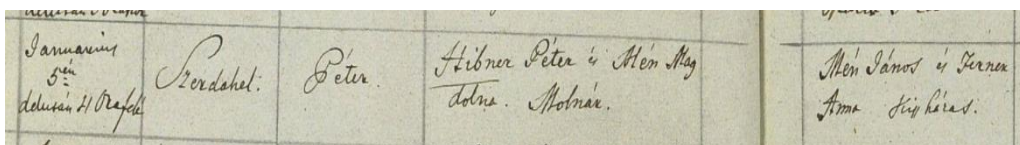 Januarius
5én
délután 4 Orafelé
Szerdahel:
Péter.
Hibner Péter és Mén Mag
dolna. Molnár.
Mén János és Ferner
Anna Kis házas.